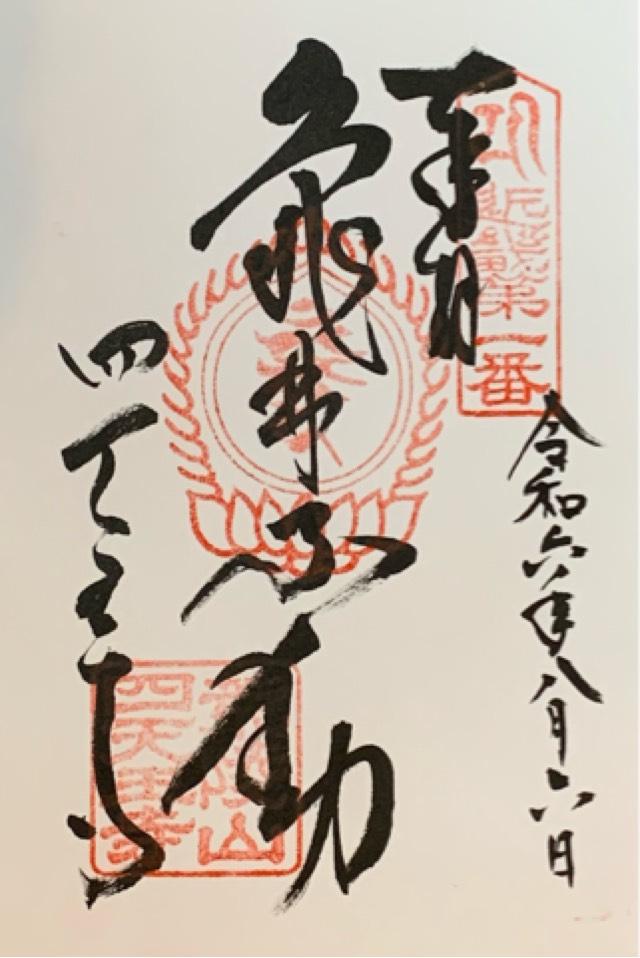 奉拝
近畿第一番
令和六年八月六日
龜井不動
四天王寺
荒陵山
四天王寺